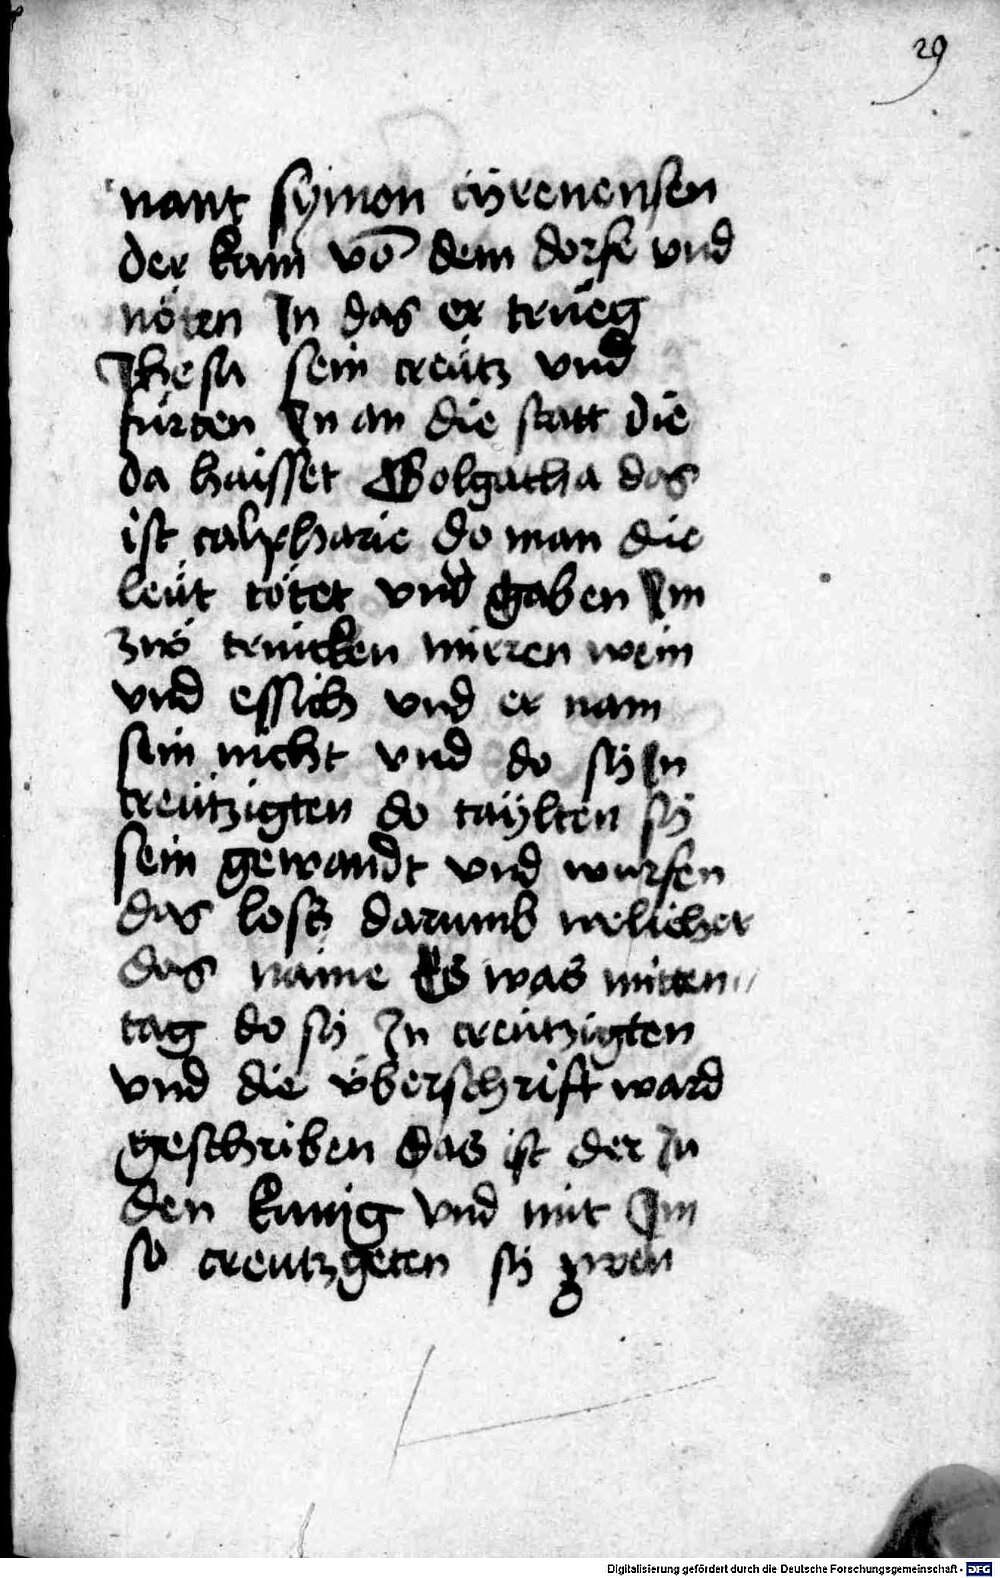 29
nant sÿmon cÿrenensen
der kam võ dem dorfe vnd
nöten In das er trüeg
Jhesu sein creütz vnd
fürten In an die statt die
da haisset Golgatha das
ist calpharie do man die
leüt tötet vnd gaben Im
zuo trincken mirren wein
vnd essich vnd er nam
sein nicht vnd do sÿ In
creützigten do taÿlten sÿ
sein gewandt vnd wurfen
das losz darumb welicher
das name Es was mitten
tag do sÿ In creützigten
vnd die überschrift ward
geschriben das ist der Ju
den kunig vnd mit Im
so creutzgeten sÿ zwen
Digitalisierung gefördert durch die Deutsche Forschungsgemeinschaft - DFG